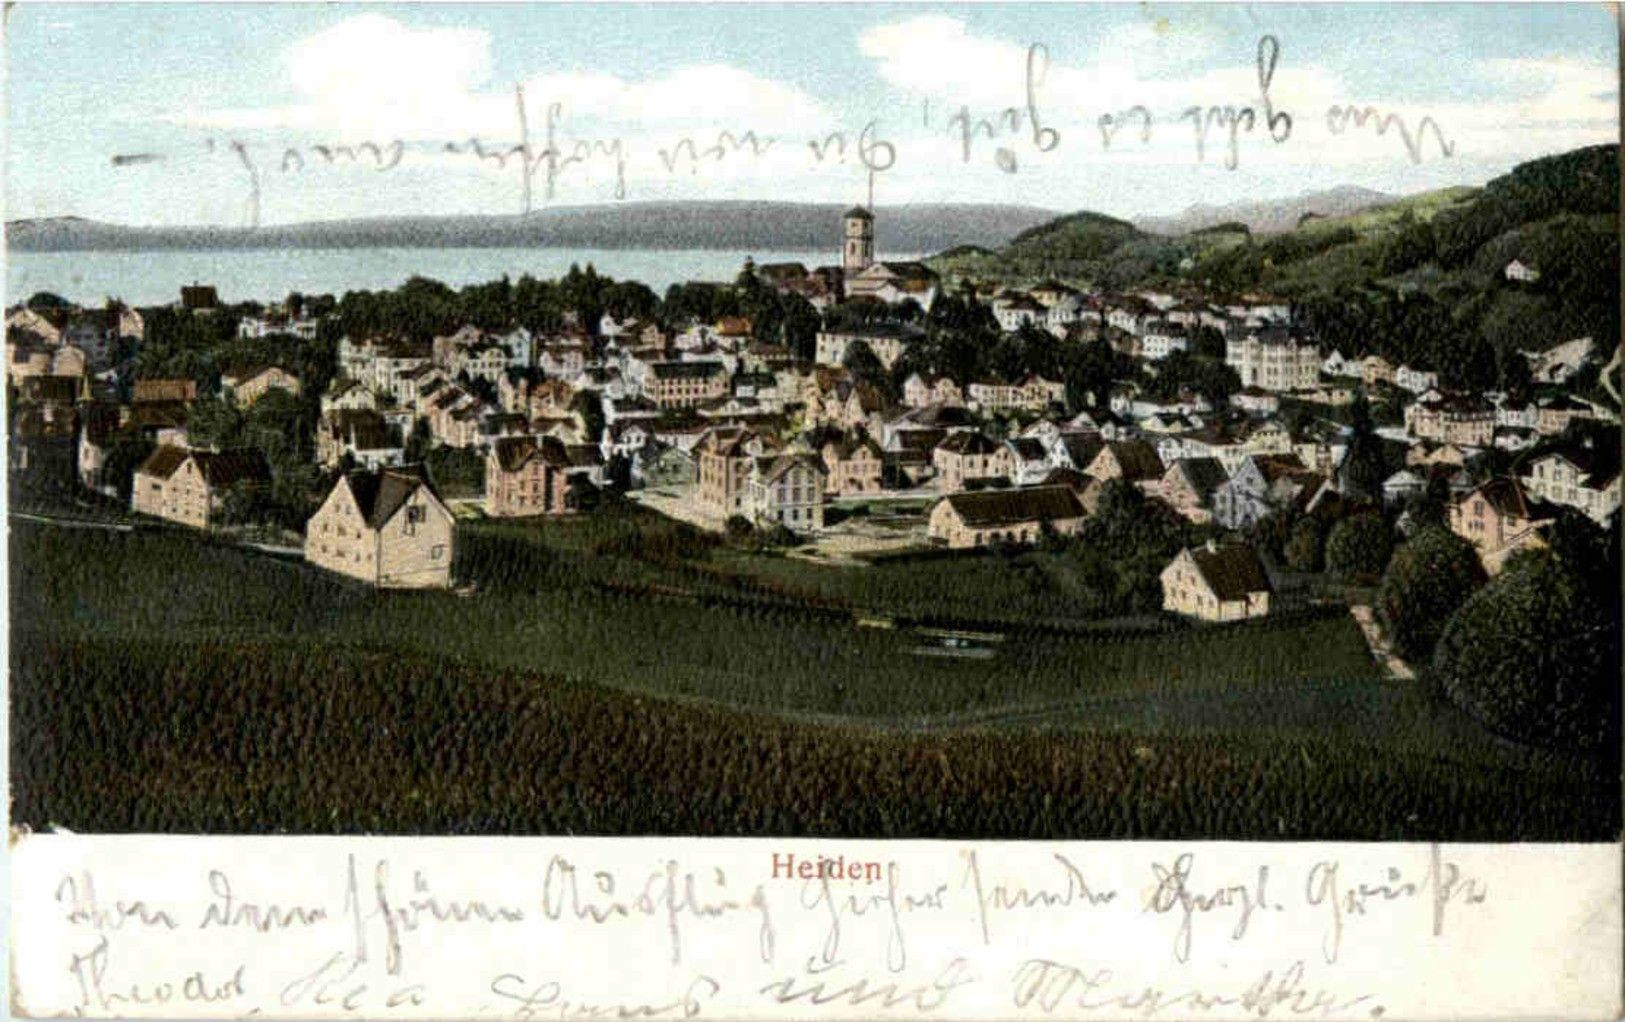 Uns geht es gut, Dir wir hoffen auch. –
Heiden
Von dem schönen Ausflug hieher senden herzl. Grüße
Theodor Rea Hans und Martha.